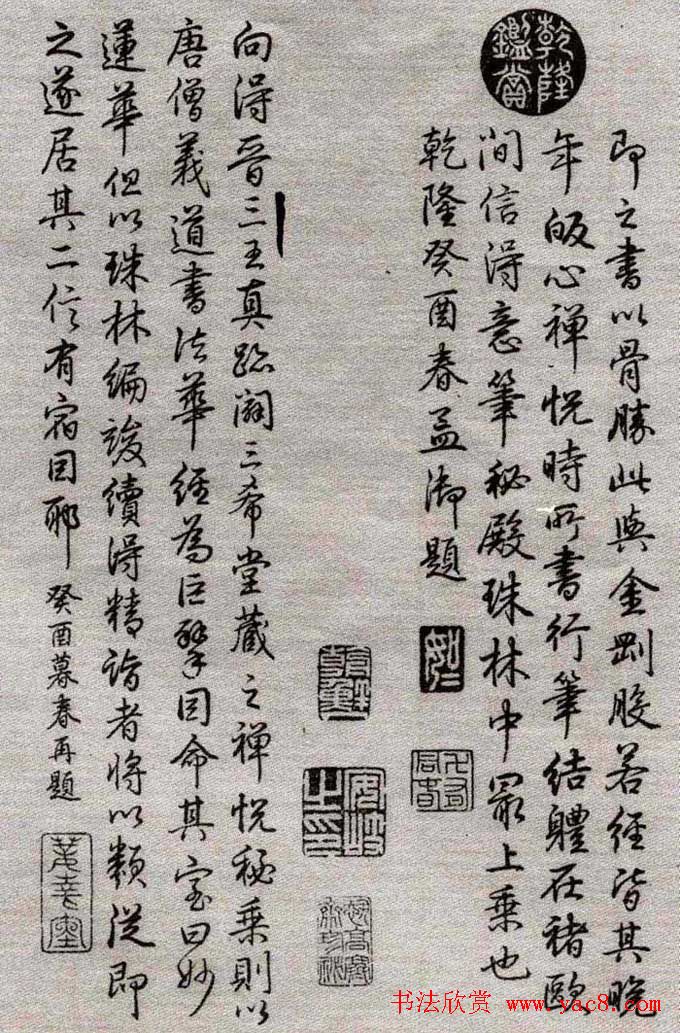 乾隆鑑賞
即之書以骨勝此與金剛般若經皆其晚
年皈心禪悅時所書行筆結體在褚歐
間信得意筆秘殿珠林中最上乘也
乾隆癸酉春孟御題
向得晉三王真跡闢三希堂藏之禪悅秘乘則以
唐僧義道書法華經為巨擘因命其室曰妙
蓮華但以珠林編竣續得精詣者將以類從即
之遂居其二信有宿因耶 癸酉暮春再題
书法欣赏 www.yac8.com